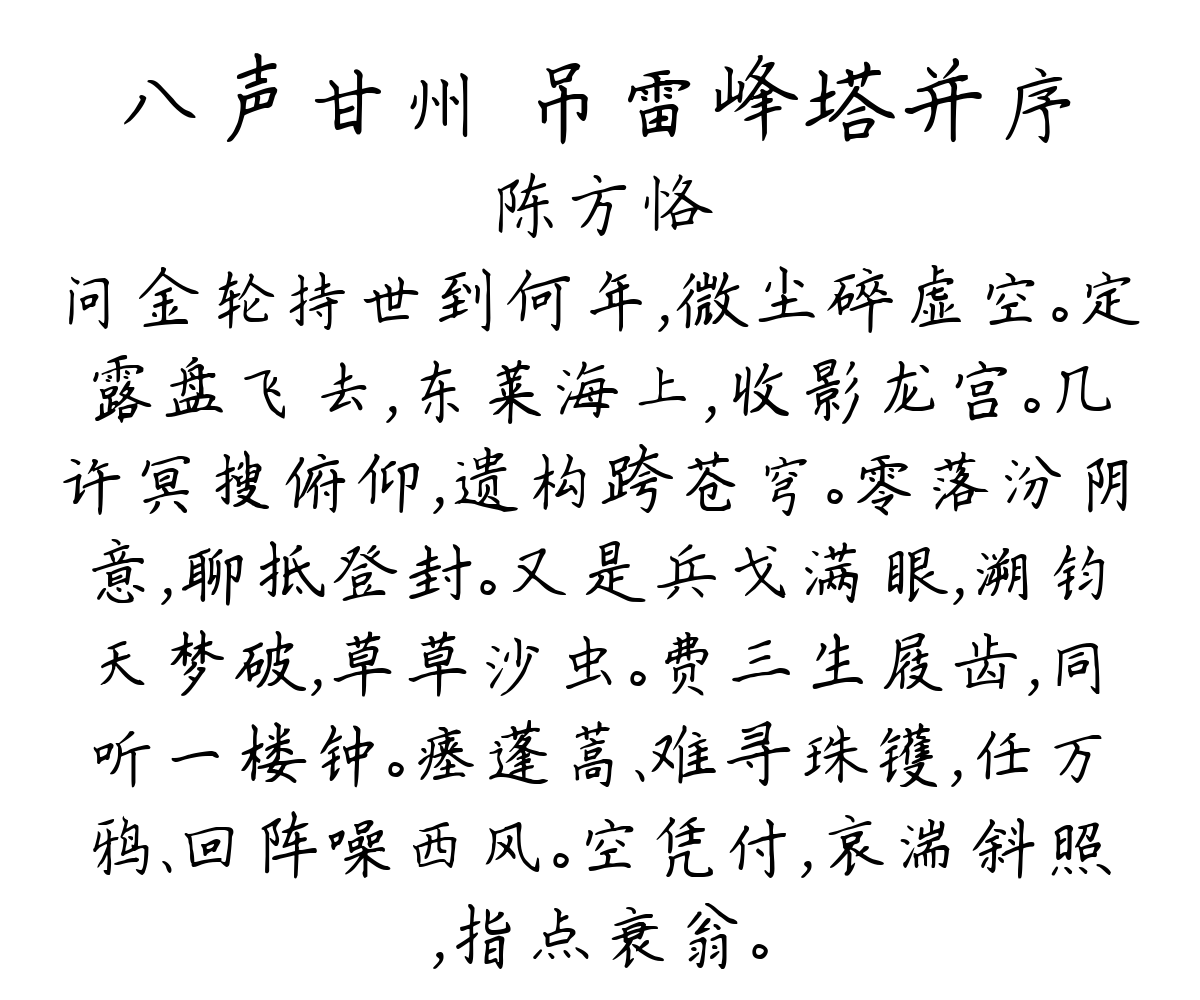 八声甘州 吊雷峰塔并序
陈方恪
问金轮持世到何年,微尘碎虚空。定
露盘飞去,东莱海上,收影龙宫。几
许冥搜俯仰,遗构跨苍穹。零落汾阴
意,聊抵登封。又是兵戈满眼,溯钧
天梦破,草草沙虫。费三生屐齿,同
听一楼钟。瘗蓬蒿、难寻珠镬,任万
鸦、回阵噪西风。空凭付,哀湍斜照
,指点衰翁。